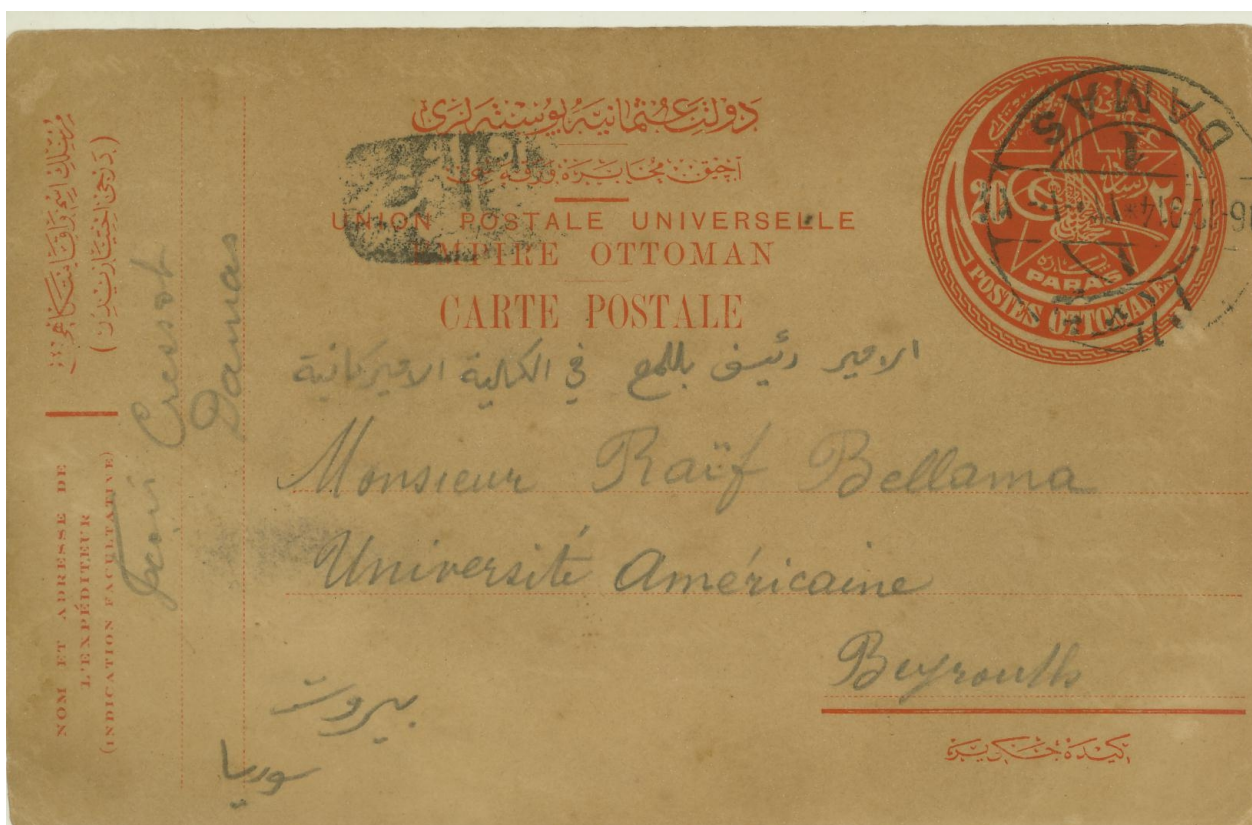 دولت عثمانیه پوسته لری
آچیق مخابره ورقه سی
UNION POSTALE UNIVERSELLE
EMPIRE OTTOMAN
CARTE POSTALE
DAMAS
20
٢٠
PARAS
POSTES OTTOMANES
الامير رئيف بللمع في الكلية الاميركانية
Monsieur Raïf Bellama
Université Américaine
Beyrouth
بيروت
سوريا
Cressot
Damas
NOM ET ADRESSE DE
L'EXPÉDITEUR
(INDICATION FACULTATIVE)